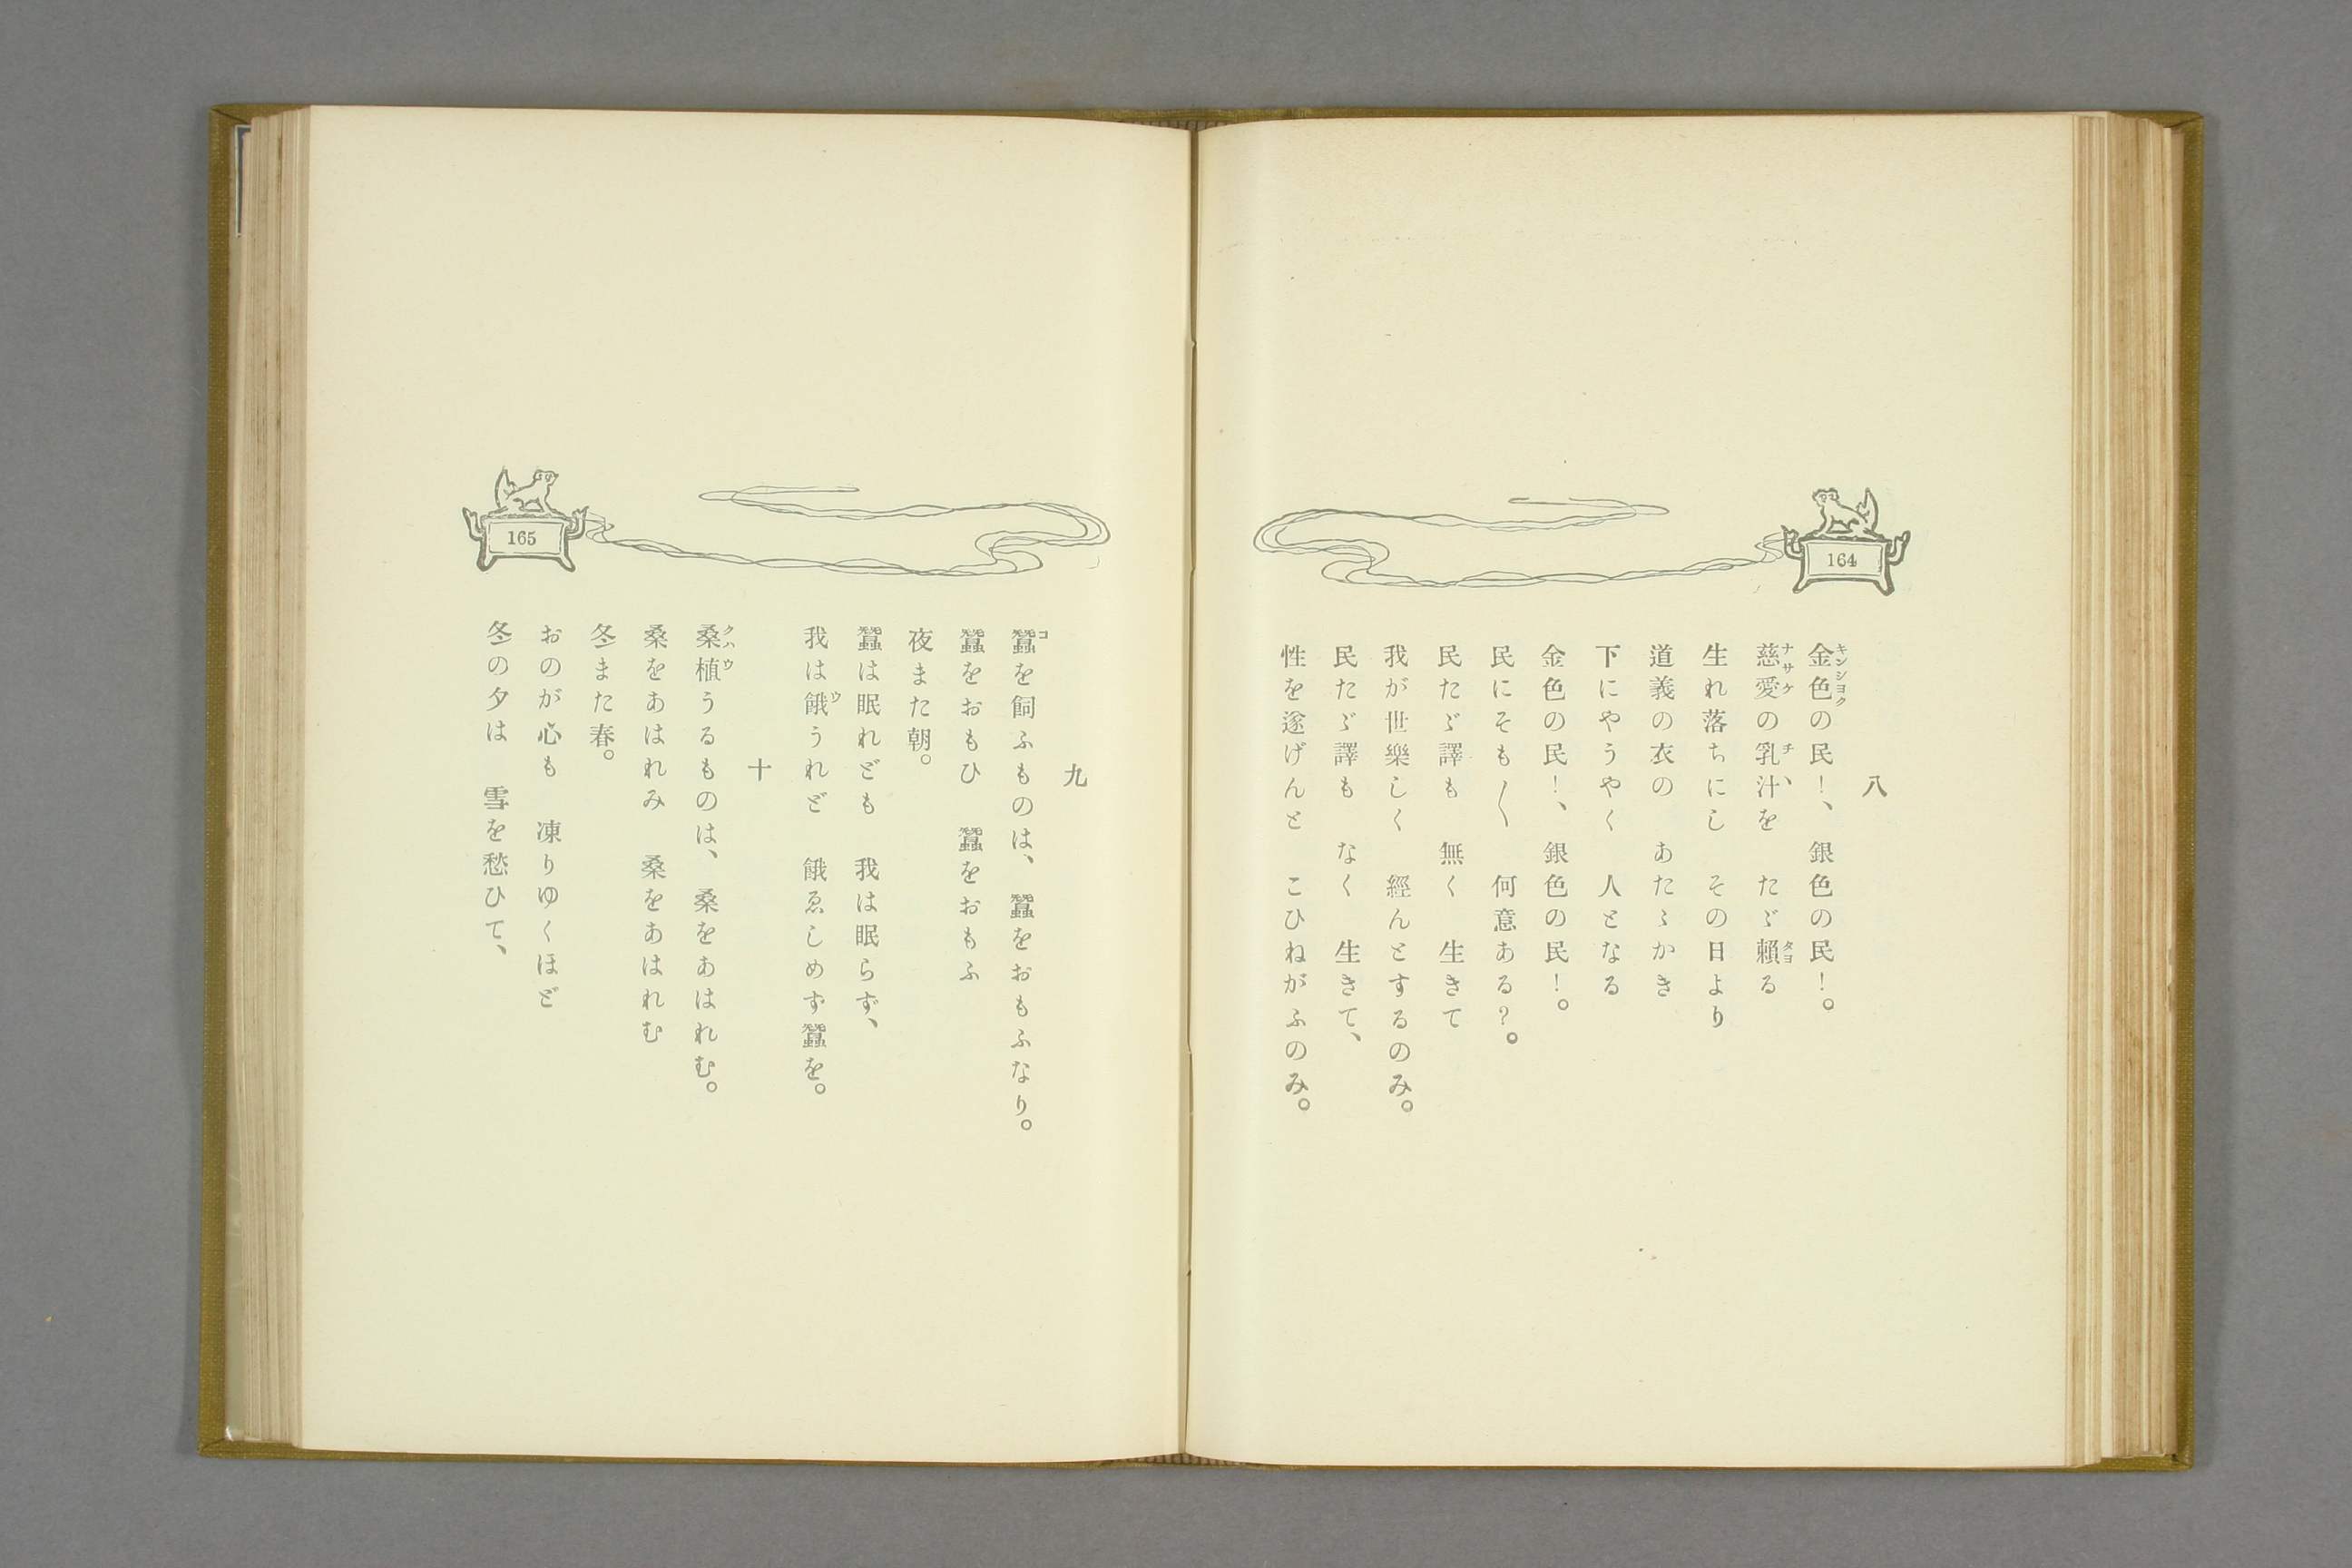 164
八
金色の民！、銀色の民！。
慈愛の乳汁を　たゞ賴る
生れ落ちにし　その日より
道義の衣の　あたゝかき
下にやうやく　人となる
金色の民！、銀色の民！。
民にそも〱　何意ある？。
民たゞ譯も　無く　生きて
我が世樂しく　經んとするのみ。
民たゞ譯も　なく　生きて、
性を遂げんと　こひねがふのみ。
165
九
蠶を飼ふものは、蠶をおもふなり。
蠶をおもひ　蠶をおもふ
夜また朝。
蠶は眠れども　我は眠らず、
我は餓うれど　餓ゑしめず蠶を。
十
桑植うるものは、桑をあはれむ。
桑をあはれみ　桑をあはれむ
冬また春。
おのが心も　凍りゆくほど
冬の夕は　雪を愁ひて、